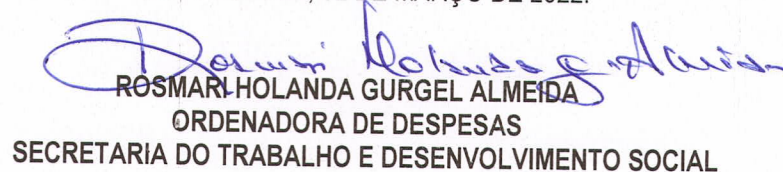 MARÇO DE 2022.
Rosmari Holanda G. Almeida
ROSMARI HOLANDA GURGEL ALMEIDA
ORDENADORA DE DESPESAS
SECRETARIA DO TRABALHO E DESENVOLVIMENTO SOCIAL